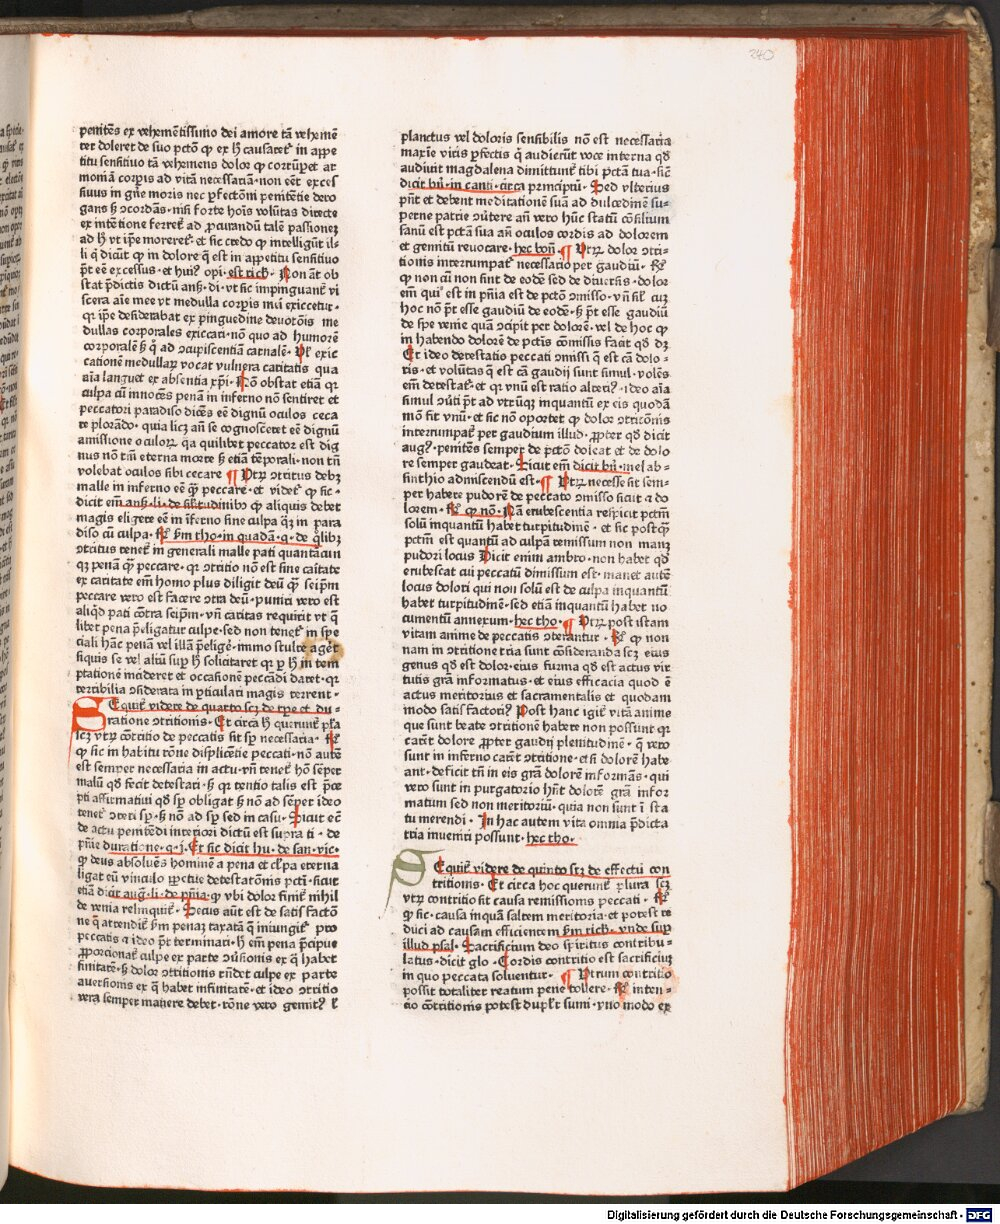 240
penitẽs ex vehemẽtissimo dei amore tã vehemẽ
ter doleret de suo pctõ ꝙ ex ħ causaret᷑ in appe
titu sensitiuo tã vehemens dolor ꝙ corrũpet ar
moniã corpis ad vitã necessariã·non eẽt exces
siuus in gñe moris nec ꝑfectõni penitẽtie dero
gans ꝫ ↄcordãs·nisi forte hoĩs volũtas directe
ex intẽtione ferret᷑ ad ꝓcurandũ talẽ passionez
ad ħ vt ipẽ moreret᷑·et sic credo ꝙ intelligũt il-
li q̃ dicũt ꝙ in dolore q̃ est in appetitu sensitiuo
p̃t eẽ excessus·et huiꝰ opi·est rich· Non añt ob
stat p̃dictis dictũ anß·di·vt sic impinguant᷑ vi
scera aĩe mee vt medulla corpis mei exiccetur·
qꝛ ipẽ desiderabat ex pinguedine deuotõis me
dullas corporales exiccari·nõ quo ad humorẽ
corporalẽ ꝫ q̃ ad ↄcupiscentiã carnalẽ· Vl᷑ exic
cationẽ medullaꝝ vocat vulnera caritatis qua
aĩa languet ex absentia xp̃i· Nõ obstat etiã qꝛ
culpa cũ innocẽs penã in inferno nõ sentiret et
peccatori paradiso dicẽs eẽ dignũ oculos ceca
re plorãdo·quia licꝫ añ se cognosceret eẽ dignũ
amissione oculoꝝ q̃a quilibet peccator est dig
nus nõ tm̃ eterna morte ꝫ etiã tẽporali·non tñ
volebat oculos sibi cecare ¶ Vtꝝ ↄtritus debꝫ
malle in inferno eẽ q̃ peccare·et videt᷑ ꝙ sic·
dicit em̃ anß·li·de sil᷑itudinibꝰ ꝙ aliquis debet
magis eligere eẽ in ĩferno sine culpa q̃ꝫ in para
diso cũ culpa· R̃ s̃m tho·in quadã·q·de q̃libꝫ
ↄtritus tenet᷑ in generali malle pati quanꝫcun
qꝫ penã q̃ peccare·qꝛ ↄtritio nõ est sine caĩtate
ex caritate em̃ homo plus diligit deũ q̃ seip̃m
peccare vero est facere ↄtra deũ·puniri vero est
aliqd pati cõtra seip̃m·vñ caritas requirit vt q̃
libet pena p̃eligatur culpe·sed non tenet᷑ in spe
ciali hãc penã vel illã p̃eligẽ·immo stulte ageret
siquis se vel aliũ suꝑ ħ solicitaret qꝛ ꝑ ħ in tem
ptationẽ incideret et occasionẽ peccãdi daret·qꝛ
terribilia ↄsiderata in ꝑticulari magis terrent·
Sequit᷑ videre de quarto scꝫ de tꝑe et du-
ratione ↄtritionis· Et circa ħ querunt᷑ pl᷑a
scꝫ vtꝝ cõtritio de peccatis sit sꝑ necessaria· R̃
ꝙ sic in habitu rõne displicẽtie peccati·nõ autẽ
est semper necessaria in actu·vñ tenet᷑ hõ sẽper
malũ qd fecit detestari·ꝫ qꝛ tẽtio talis est p̃ce
pti affirmatiui qd sꝑ obligat ꝫ nõ ad sẽper ideo
tenet᷑ ↄteri sꝑ·ꝫ nõ ad sꝑ sed in casu· Sicut eẽ
de actu penitẽdi interiori dictũ est supra ti·de
pñie duratione·q·j· Et sic dicit hu·de san·vic·
ꝙ deus absoluẽs hominẽ a pena et cl᷑pa eterna
ligat eũ vinculo ꝑpetue detestatõnis pcti·sicut
etiã dicit aug·li·de pñia·ꝙ vbi dolor finit᷑ nihil
de venia relinquit᷑· Secus aũt est de satisfactõ
ne q̃ attendit᷑ s̃m penaꝫ taxatã q̃ iniungit᷑ pro
peccatis a ideo p̃t terminari·ħ em̃ pena p̃cipue
ꝓporcionat᷑ culpe ex parte ↄuersionis ex q̃ habet
finitatẽ·ꝫ dolor ↄtritionis rñdet culpe ex parte
auersionis ex q̃ habet infinitatẽ·et ideo ↄtritio
vera semper manere debet·rõne vero gemitꝰ ꝉ
planctus vel doloris sensibilis nõ est necessaria
maxie viris ꝑfectis q̃ audierũt voce interna qd
audiuit magdalena dimittunt᷑ tibi pctã tua·sic
dicit bñ·in canti·circa principiũ· Sed vlterius
pñt et debent meditationẽ suã ad dulcedinẽ su-
perne patrie ↄuertere añ vero hũc statũ cõsilium
sanũ est pctã sua añ oculos cordis ad dolorem
et gemitũ reuocare·hec boñ·¶ Vtꝝ dolor ↄtri-
tionis interrumpat᷑ necessario per gaudiũ· R̃
ꝙ non cũ non sint de eodẽ sed de diuersis·dolor
em̃ qui est in pñia est de pctõ ↄmisso·vñ sil᷑ cũ
hoc nõ p̃t esse gaudiũ de eodẽ·ꝫ p̃t esse gaudiũ
de spe venie quã ↄcipit per dolorẽ·vel de hoc ꝙ
in habendo dolorẽ de pctis cõmissis facit qd dꝫ
Et ideo detestatio peccati ↄmissi q̃ est cã dolo-
ris·et volũtas q̃ est cã gaudij sunt simul·volẽs
em̃ detestat᷑·et qꝛ vnũ est ratio alteriꝰ·ideo aĩa
simul ↄuti p̃t ad vtrũqꝫ inquantũ ex eis quodã
mõ fit vnũ·et sic nõ oportet ꝙ dolor ↄtritõnis
interrumpat᷑ per gaudium illud·ꝓpter qd dicit
augꝰ·penitẽs semper de pctõ doleat et de dolo
re semper gaudeat· Sicut em̃ dicit bñ·mel ab-
sinthio admiscendũ est·¶ Vtꝝ necesse sit sem-
per habere pudorẽ de peccato ↄmisso sicut a do
lorem· R̃ ꝙ nõ· Nã erubescentia respicit pctm̃
solũ inquantũ habet turpitudinẽ·et sic postq̃
pctm̃ est quantũ ad culpam remissum non manꝫ
pudori locus Dicit enim ambro·non habet qd
erubescat cui peccatũ dimissum est·manet autẽ
locus dolori qui non solũ est de culpa inquantũ
habet turpitudinẽ·sed etiã inquantũ habet no
cumentũ annexum·hec tho·¶ Vtꝝ post istam
vitam anime de peccatis ↄterantur· R̃ ꝙ non
nam in ↄtritione tria sunt cõsideranda scꝫ eius
genus qd est dolor·eius forma qd est actus vir
tutis grã informatus·et eius efficacia quod ẽ
actus meritorius et sacramentalis et quodam
modo satisfactoriꝰ Post hanc igit᷑ vitã anime
que sunt beate ↄtritionẽ habere non possunt qꝛ
carẽt dolore ꝓpter gaudij plenitudinẽ·q̃ vero
sunt in inferno carẽt ↄtritione·etsi dolorẽ habe
ant·deficit tñ in eis grã dolorẽ informãs·qui
vero sunt in purgatorio hñt dolorẽ grã infor
matum sed non meritoriũ·quia non sunt ĩ sta
tu merendi· In hac autem vita omnia p̃dicta
tria inueniri possunt·hec tho·
Sequit᷑ videre de quinto scꝫ de effectu con
tritionis· Et circa hoc querunt᷑ plura scꝫ
vtꝝ contritio sit causa remissionis peccati· R̃
ꝙ sic·causa inquã saltem meritoria·et potest re
duci ad causam efficientem s̃m rich·vnde suꝑ
illud psal·Sacrificium deo spiritus contribu-
latus·dicit glo·Cordis contritio est sacrificiũ
in quo peccata soluentur·¶ Vtrum contritio
possit totaliter reatum pene tollere· R̃ inten-
cio cõtritionis potest dupl᷑r sumi·vno modo ex
Digitalisierung gefördert durch die Deutsche Forschungsgemeinschaft - DFG